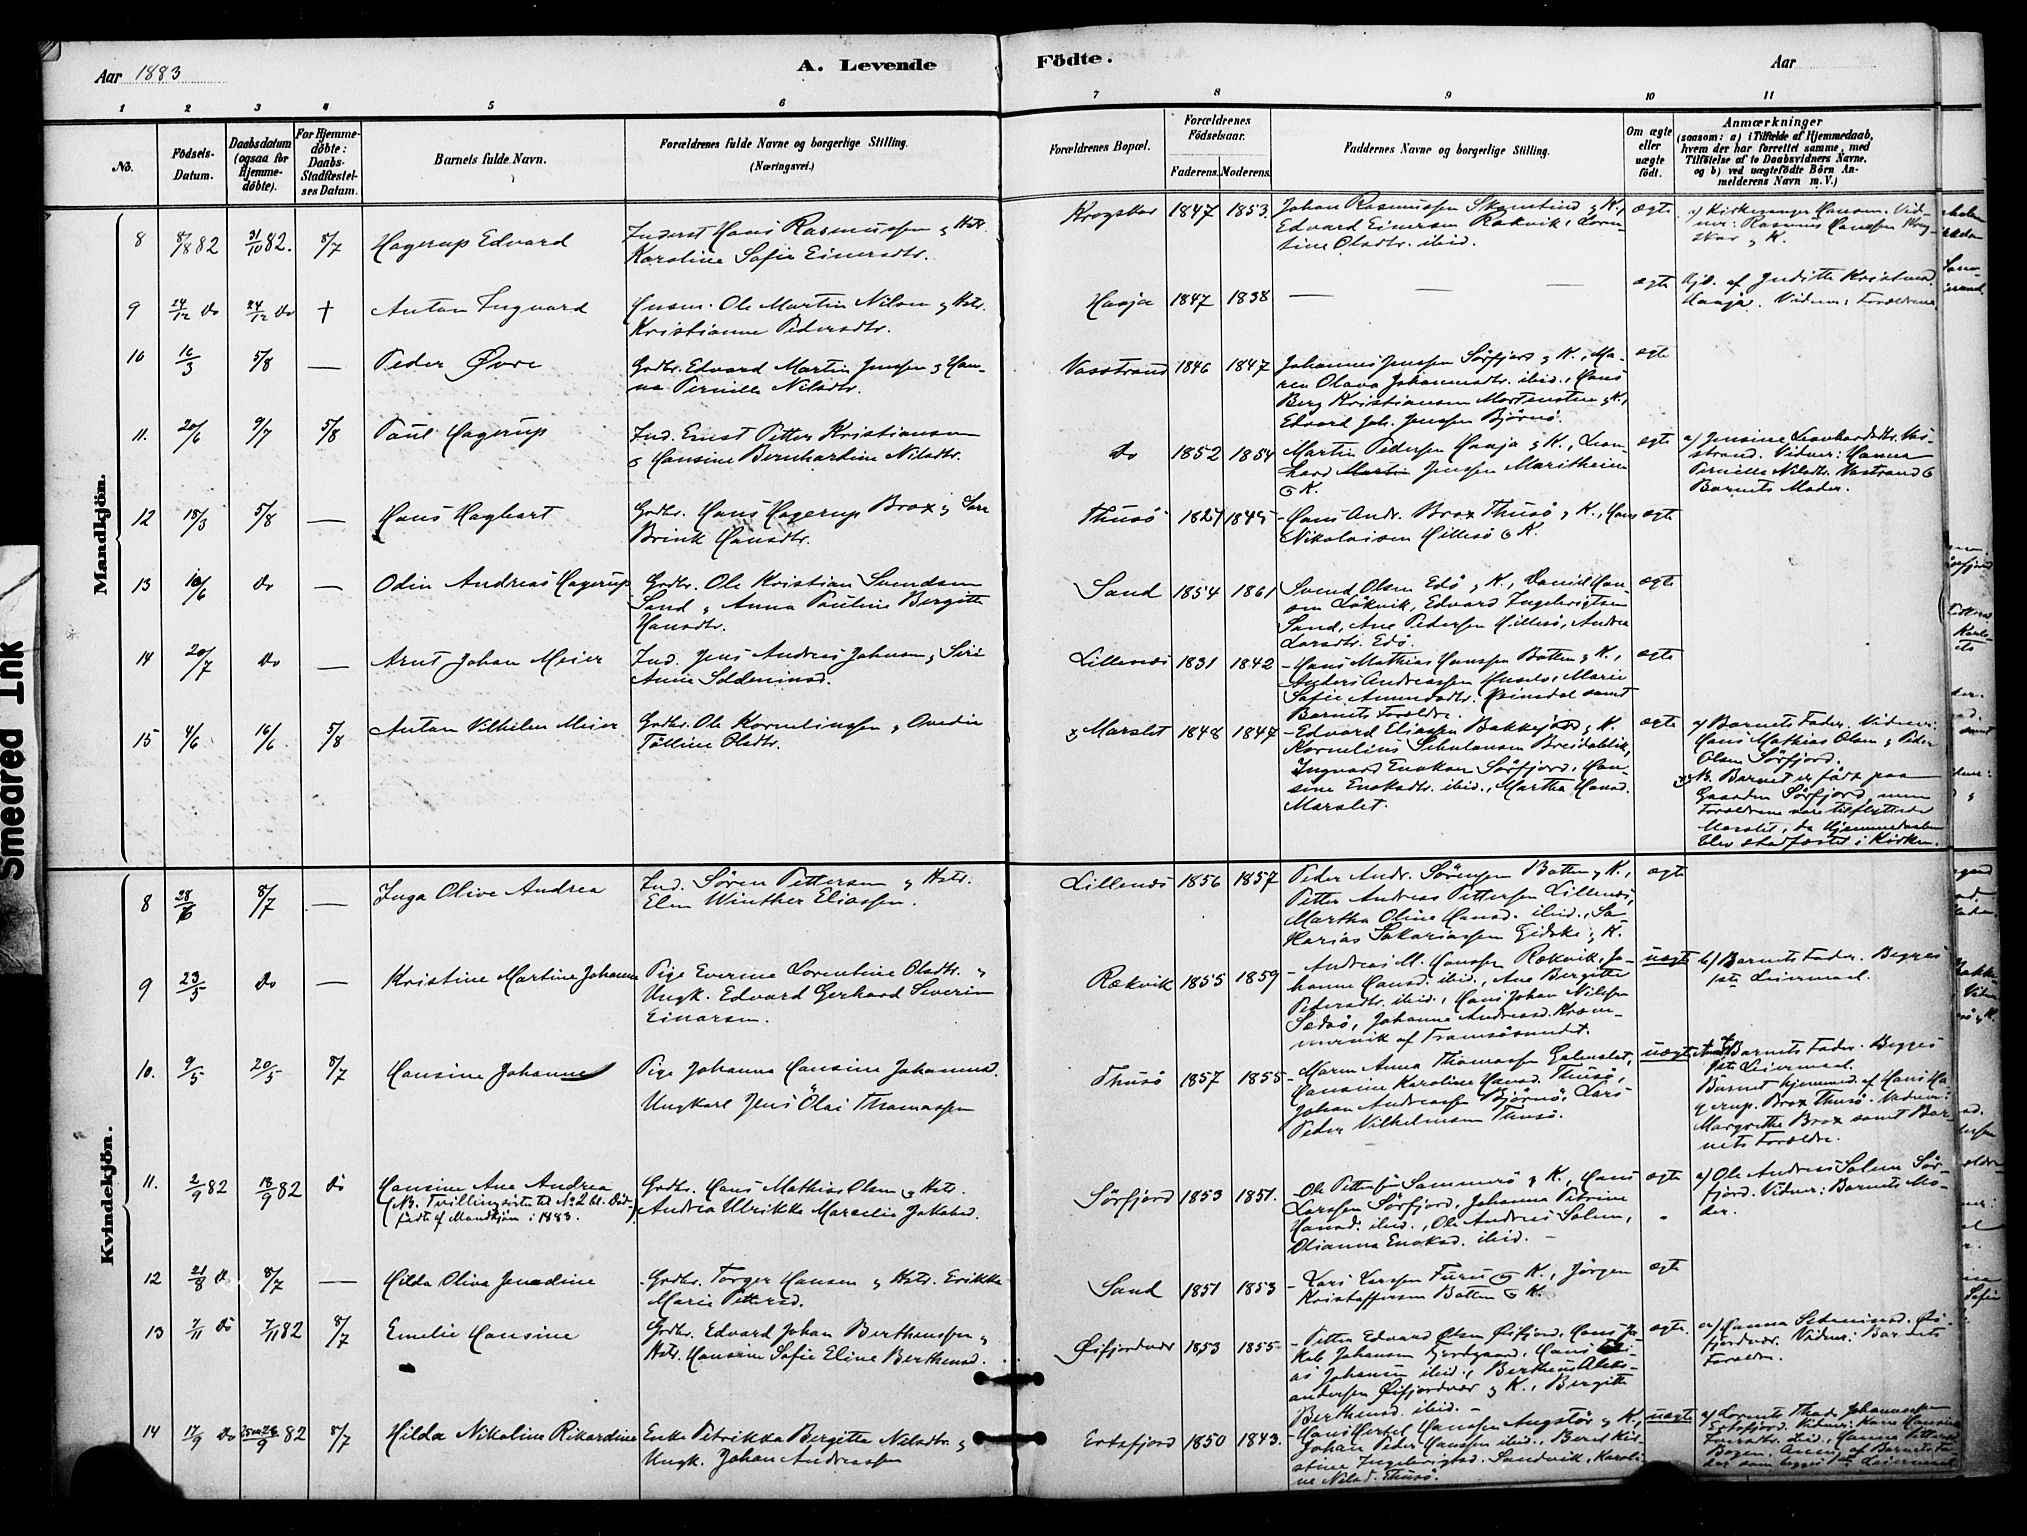 Aar 1883
A. Levende
Födte.
Aar
1 2 3 4 5 6 7 8 9 10 11
No.
Födsels-
Datum.
Daabsdatum
(ogsaa för
Hjemme-
döbte).
For Hjemme-
döbte:
Daabs-
Stadfæstel-
ses Datum.
Barnets fulde Navn.
Forældrenes fulde Navne og borgerlige Stilling.
(Næringsvei.)
Forældrenes Bopæl.
Forældrenes
Födselsaar.
Faderens. Moderens.
Faddernes Navne og borgerlige Stilling.
Om ægte
eller
uægte
födt.
Anmærkninger
(saasom: a) i Tilfælde af Hjemmedaab,
hvem der har forrettet samme, med
Tilföielse af to Daabsvidners Navne.
og b) ved uægtefödte Börn An-
melderens Navn m. V.)
Mandkjön.
8 8/8 82 31/10 82. 8/7 Hagerup Edvard
Inderst Hans Rasmussen & Hstr.
Karoline Sofie Einersdtr.
Krogskar 1847 1853.
Johan Rasmussen & K.,
Edvard Einersen Rækvik,
tine Olsdtr. ibid.
ægte
a) Kirkesanger Hansen. Vid-
ner: Rasmus Hanssen Krog-
skar & K.
9 24/12 Do 24/12 Do † Anton Ingvard
Husm. Ole Martin Nilsen & Hstr.
Kristianne Pedersdtr.
Haaja 1847 1838 — — —
ægte
Hjd. af Judithe Kristined.
Haaja. Vidner: Forældrene
10 16/3 5/8 — Peder Øvre
Grdbr. Edvard Martin Jenssen & Han-
na Pernille Nilsdtr.
Vasstrand 1846 1847
Johannes Jenssen Sørfjord & K., Ma-
ren Olava Johannesdtr. ibid., Hans
Berg Kristiansen & K.,
Edvard Joh. Jenssen Bjørnø.
ægte
11. 20/6 9/7 5/8 Paul Hagerup
Ind. Ernst Petter Kristiansen
& Hansine Bernhardine Nilsdtr.
Do 1852 1854
Martin Pedersen Haaja & K., Leon-
hard Martin Jenssen Maritheim
& K.
ægte
a) Jensine Leonhardsdtr. Vas-
strand. Vidner: Hanna
Pernille Nilsdtr. Vasstrand &
Barnets Moder.
12 18/3 5/8 — Hans Hagbart
Grdbr. Hans Hagerup Brox & Sara
Brink Hansdtr.
Thusø 1827 1845
Hans Andr. Brox Thusø & K., Hans
Nikolaisen Hillesø & K.
ægte
13 10/6 Do — Odin Andreas Hagerup
Grdbr. Ole Kristian Svendsen
Sand & Anna Pauline Bergitte
Hansdtr.
Sand 1854 1861
Svend Olsen Edø & K., Daniel Han-
sen Løkvik, Edvard Ingebrigtsen
Sand, Ane Pedersen Hillesø, Andrea
Larsdtr. Edø.
ægte
14 20/7 Do — Arnt Johan Meier
Ind. Jens Andreas Johnsen & Siri
Anna
Lillenæs 1831 1842
Hans Mathias Hanssen Botten & K.,
Anders Andreassen, Marie
Sofie Amundsdtr. samt
Barnets Forældre.
ægte
15 4/6 16/6 5/8 Anton Vilhelm Meier
Grdbr. Ole Korneliussen & Ovedia
Tølline Olsdtr.
Marslet 1848 1847
Edvard Eliassen Bakkejord & K.
Kornelius Breidablik,
Ingvard Enoksen Sørfjord, Han-
sine Enoksdtr. ibid., Martha Hansd.
Marslet.
ægte
a) Barnets Fader. Vidner:
Hans Mathias Olsen & Peder
Olsen Sørfjord.
NB. Barnet er født paa
Gaarden Sørfjord, men
Forældrene vare tilflyttede
Marslet, da Hjemmedaaben
blev stadfæstet i Kirken.
Kvindekjön.
8 28/6 8/7 — Inga Olive Andrea
Ind. Søren Pettersen & Hstr.
Elen Winther Eliassen.
Lillenæs 1856 1857
Peder Andr. Sørensen Botten & K.,
Petter Andreas Pettersen Lillenæs,
Martha Oline Hansd. ibid., Sa-
karias Sakariassen Gidske & K.
ægte
9 23/5 Do — Kristine Martine Johanne
Pige Everine Lorentine Olsdtr. &
Ungk. Edvard Gerhard Severin
Einarsen.
Rækvik 1855 1859
Andreas M. Hanssen Rækvik, Jo-
hanne Hansd. ibid., Ane Bergitte
Pedersdtr. ibid., Hans Johan Nilssen
Sedsø, Johanne Andreasd.
af Tromsøsundet.
uægte
b) Barnets Fader. Begges
1ste Leiermaal.
10. 9/5 20/5 8/7 Hansine Johanne
Pige Johanna Hansine Johannesd.
Ungkarl Jens Olai Thomassen
Thusø 1857 1855
Maren Anna Thomassen,
Hansine Karoline Hansd. Thusø,
Johan Andreassen Bjørnø, Lars
Peder Vilhelmsen Thusø.
uægte
Barnets Fader. Begges
1ste Leiermaal.
Barnet hjemmed. af Hans Ha-
gerup Brox Thusø. Vidner:
Margrethe Brox samt Bar-
nets Forældre.
11. 2/9 82 18/9 82 Do Hansine Ane Andrea
(NB. Tvillingsøster til No 2 bl. Død-
fødte af Mandkjøn i 1883.)
Grdbr. Hans Mathias Olsen & Hstr.
Andrea Ulrikke Marcelie Jakobsd.
Sørfjord 1853 1851.
Ole Pettersen Sommerø & K., Hans
Larssen Sørfjord, Johanna Petrine
Hansd. ibid., Ole Andreas Solem,
Olianna Enoksd. ibid.
ægte
a) Ole Andreas Solem Sør-
fjord. Vidner: Barnets Mo-
der.
12 21/8 Do 8/7 — Hilda Oliva Jensdine
Grdbr. Torger Hansen & Hstr. Erikka
Marie Pettersd.
Sand 1851 1853
Lars Larssen Furu & K., Jørgen
Kristoffersen Botten & K.
ægte
13 7/11 Do 7/11 82 8/7 Emelie Hansine
Grdbr. Edvard Johan Berthenssen &
Hstr. Hansine Sofie Eline Berthensd.
Øifjordvær 1853 1855
Petter Edvard Olsen Øifjord, Hans Ja-
kob Johansen, Hans Eli-
as Johansen ibid., Bertheus Aleks-
andersen Øifjordvær & K., Bergitte
Berthensd. ibid.
ægte.
a) Hanna, Øi-
fjordvær. Vidner: Barnets
Forældre.
14 17/9 Do 82 8/7 Hilda Nikoline Rikardine
Enke Petrikka Bergitta Nilsdtr. &
Ungk. Johan Andreassen
Ertsfjord 1850 1843.
Hans Hertel Hanssen Angstør & K.,
Johan Peder Hanssen ibid., Beret Kir-
stine Ingebrigtsd. Sandvik, Karoli-
ne Nilsd. Thusø.
uægte
Ertsfjord. Vidner:
Smeared Ink